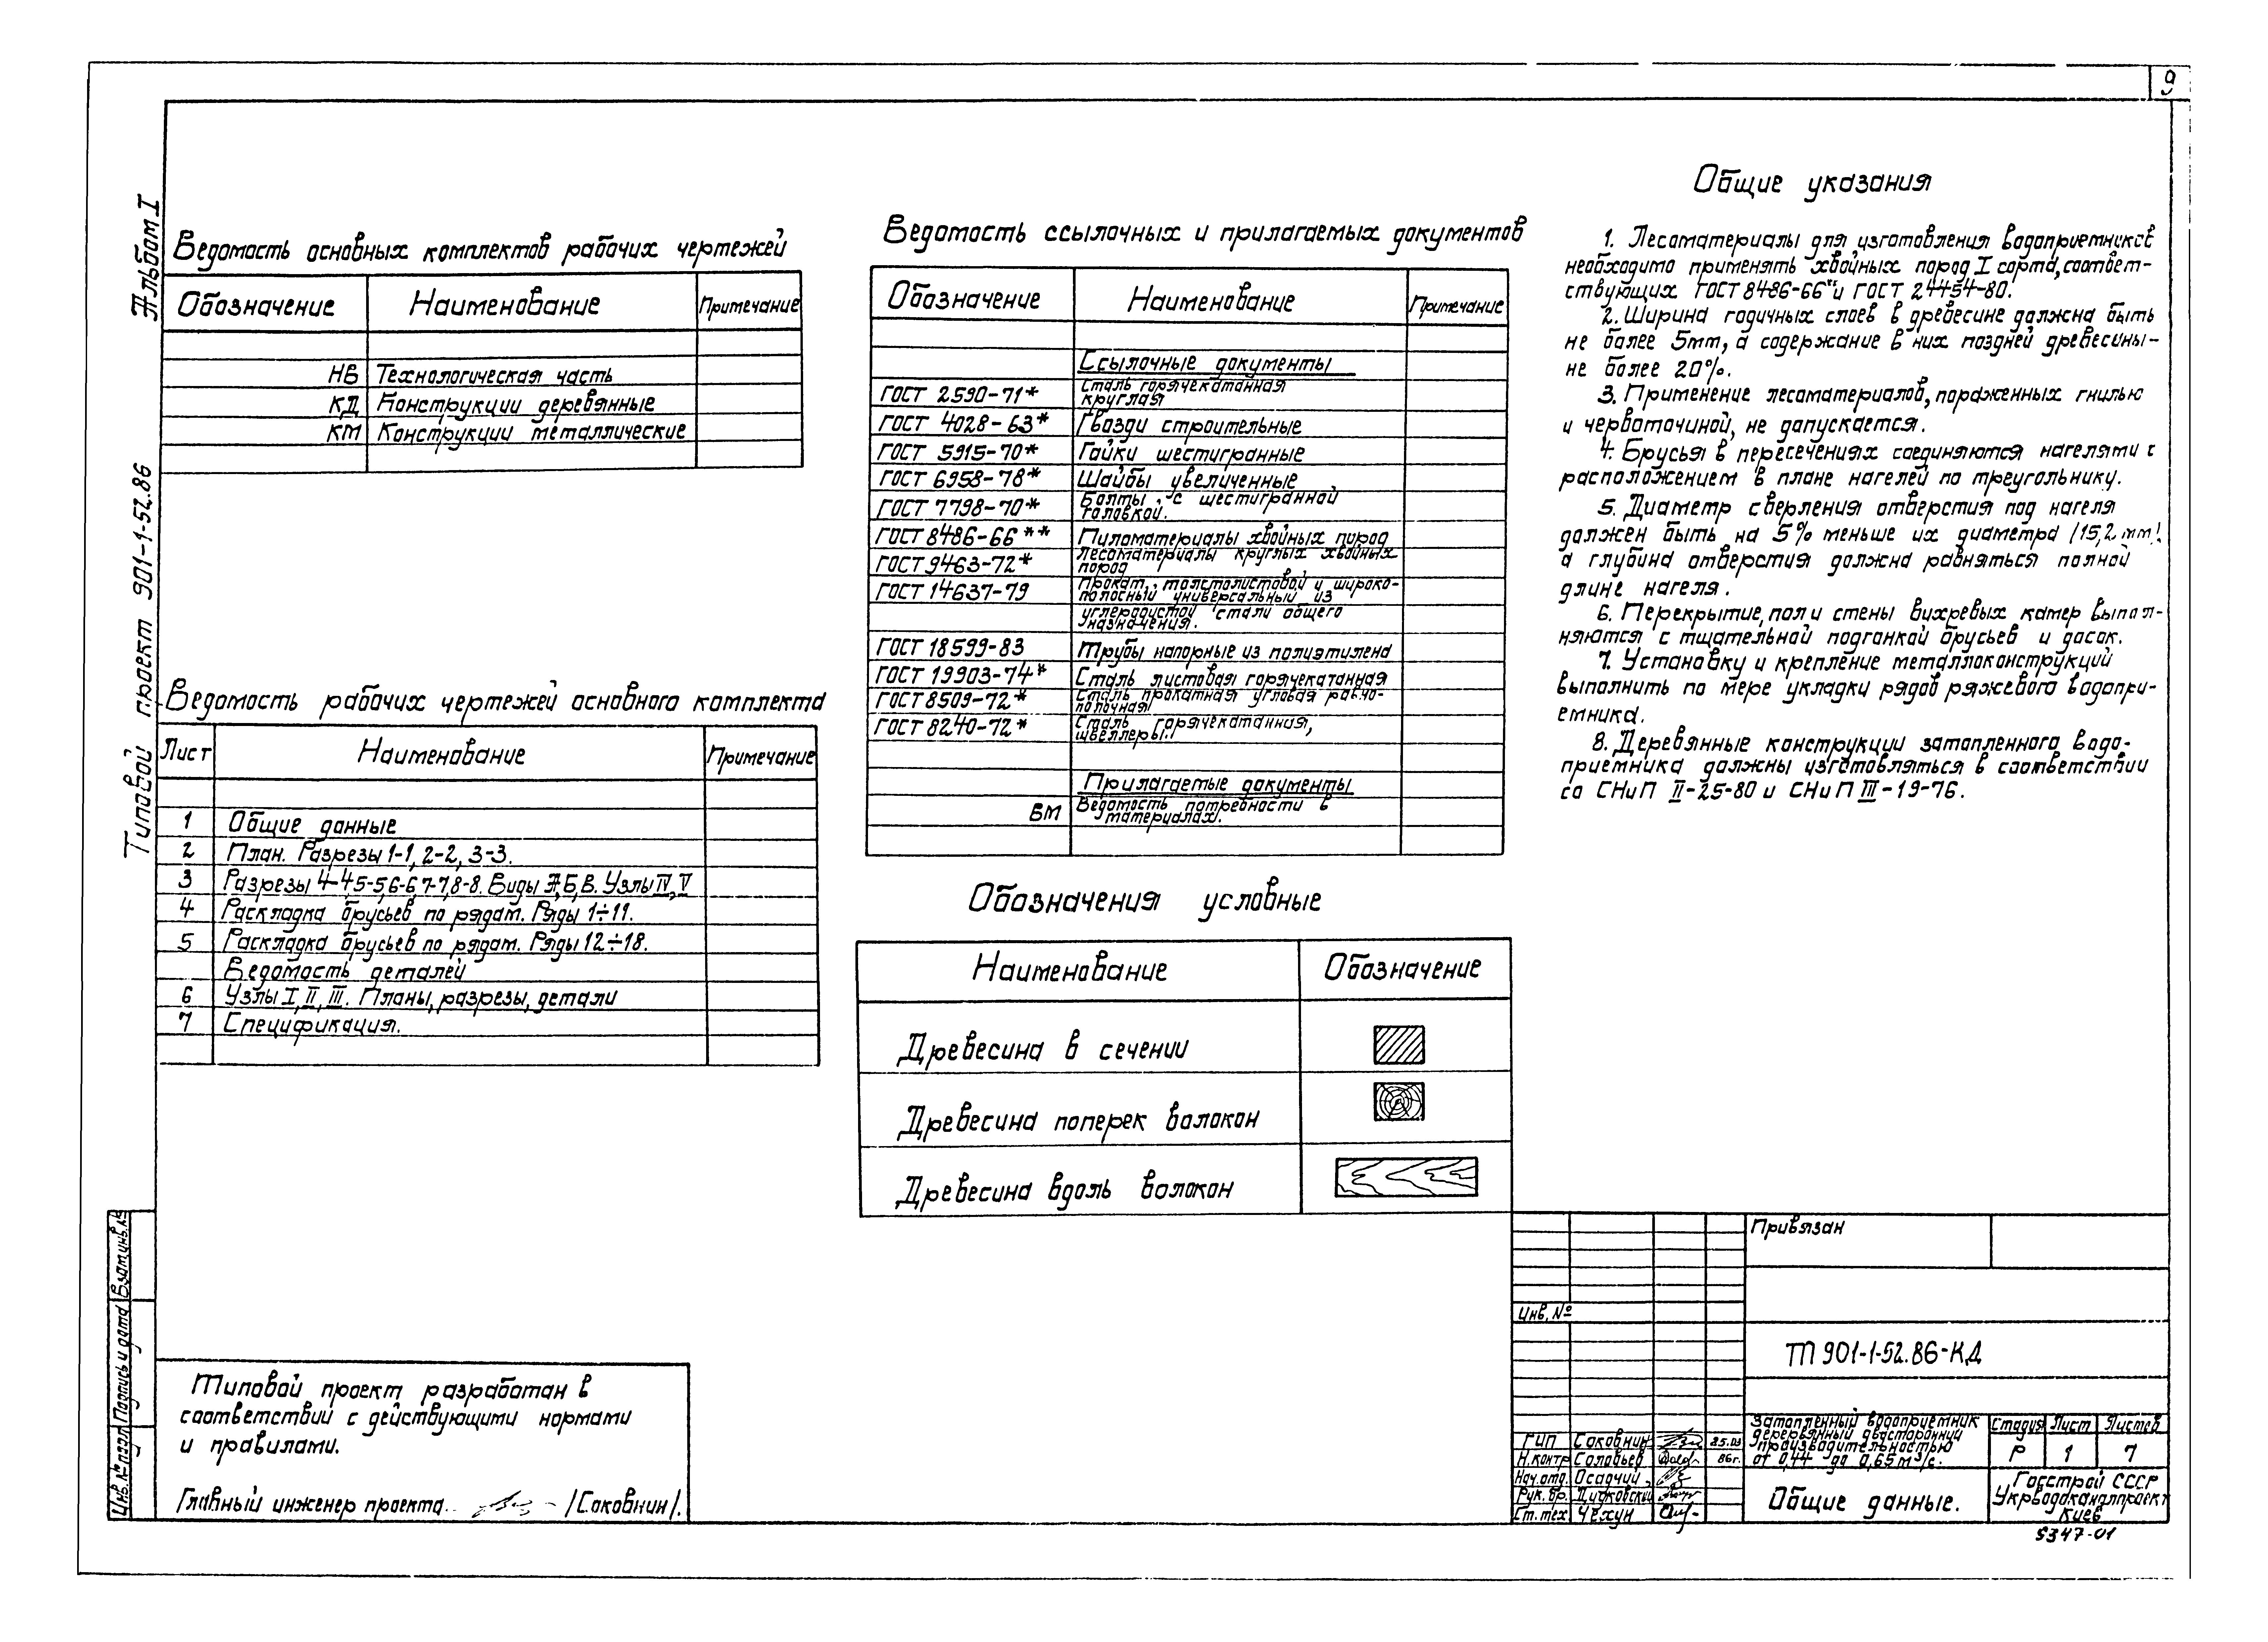 9
Альбом I
Типовой проект 901-1-52.86
Ведомость основных комплектов рабочих чертежей
Обозначение Наименование Примечание
НВ Технологическая часть
КД Конструкции деревянные
КМ Конструкции металлические
Ведомость рабочих чертежей основного комплекта
Лист Наименование Примечание
1 Общие данные
2 План. Разрезы 1-1, 2-2, 3-3.
3 Разрезы 4-4 5-5, 6-6, 7-7, 8-8. Виды А, Б, В. Узлы IV, V
4 Раскладка брусьев по рядам. Ряды 1÷11.
5 Раскладка брусьев по рядам. Ряды 12÷18.
Ведомость деталей
6 Узлы I, II, III. Планы, разрезы, детали
7 Спецификация.
Ведомость ссылочных и прилагаемых документов
Обозначение Наименование Примечание
Ссылочные документы
ГОСТ 2590-71* Сталь горячекатанная
круглая
ГОСТ 4028-63* Гвозди строительные
ГОСТ 5915-70* Гайки шестигранные
ГОСТ 6958-78* Шайбы увеличенные
ГОСТ 7798-70* Болты с шестигранной
головкой.
ГОСТ 8486-66** Пиломатериалы хвойных пород
ГОСТ 9463-72* Лесоматериалы круглых хвойных
пород
ГОСТ 14637-79 Прокат толстолистовой и широко-
полосный универсальный из
углеродистой стали общего
назначения.
ГОСТ 18599-83 Трубы напорные из полиэтилена
ГОСТ 19903-74* Сталь листовая горячекатанная
ГОСТ 8509-72* Сталь прокатная угловая равно-
полочная
ГОСТ 8240-72* Сталь горячекатанная,
швеллеры.
Прилагаемые документы
ВМ Ведомость потребности в
материалах.
Обозначения условные
Наименование Обозначение
Древесина в сечении
Древесина поперек волокон
Древесина вдоль волокон
Общие указания
1. Лесоматериалы для изготовления водоприемников
необходимо применять хвойных пород I сорта, соответ-
ствующих ГОСТ 8486-66** и ГОСТ 24454-80.
2. Ширина годичных слоев в древесине должна быть
не более 5мм, а содержание в них поздней древесины-
не более 20%.
3. Применение лесоматериалов, пораженных гнилью
и червоточиной, не допускается.
4. Брусья в пересечениях соединяются нагелями с
расположением в плане нагелей по треугольнику.
5. Диаметр сверления отверстия под нагеля
должен быть на 5% меньше их диаметра (15,2 мм),
а глубина отверстия должна равняться полной
длине нагеля.
6. Перекрытие, пол и стены вихревых камер выпол-
няются с тщательной подгонкой брусьев и досок.
7. Установку и крепление металлоконструкций
выполнить по мере укладки рядов ряжевого водопри-
емника.
8. Деревянные конструкции затопленного водо-
приемника должны изготовляться в соответствии
со СНиП II-25-80 и СНиП III-19-76.
Типовой проект разработан в
соответствии с действующими нормами
и правилами.
Главный инженер проекта /Саковнин/.
Инв. № подл Подпись и дата Взам.инв.№
Привязан
Инв. №
ТП 901-1-52.86-КД
ГИП Саковнин 25.03
Н.контр Соловьев 86г.
Нач.отд. Осадчий
Рук. бр.
Ст.тех Чехун
Затопленный водоприемник
деревянный двусторонний
производительностью
от 0,44 до 0,65 м³/с.
Стадия Лист Листов
Р 1 7
Общие данные.
Госстрой СССР
Укрводоканалпроект
Киев
9347-01